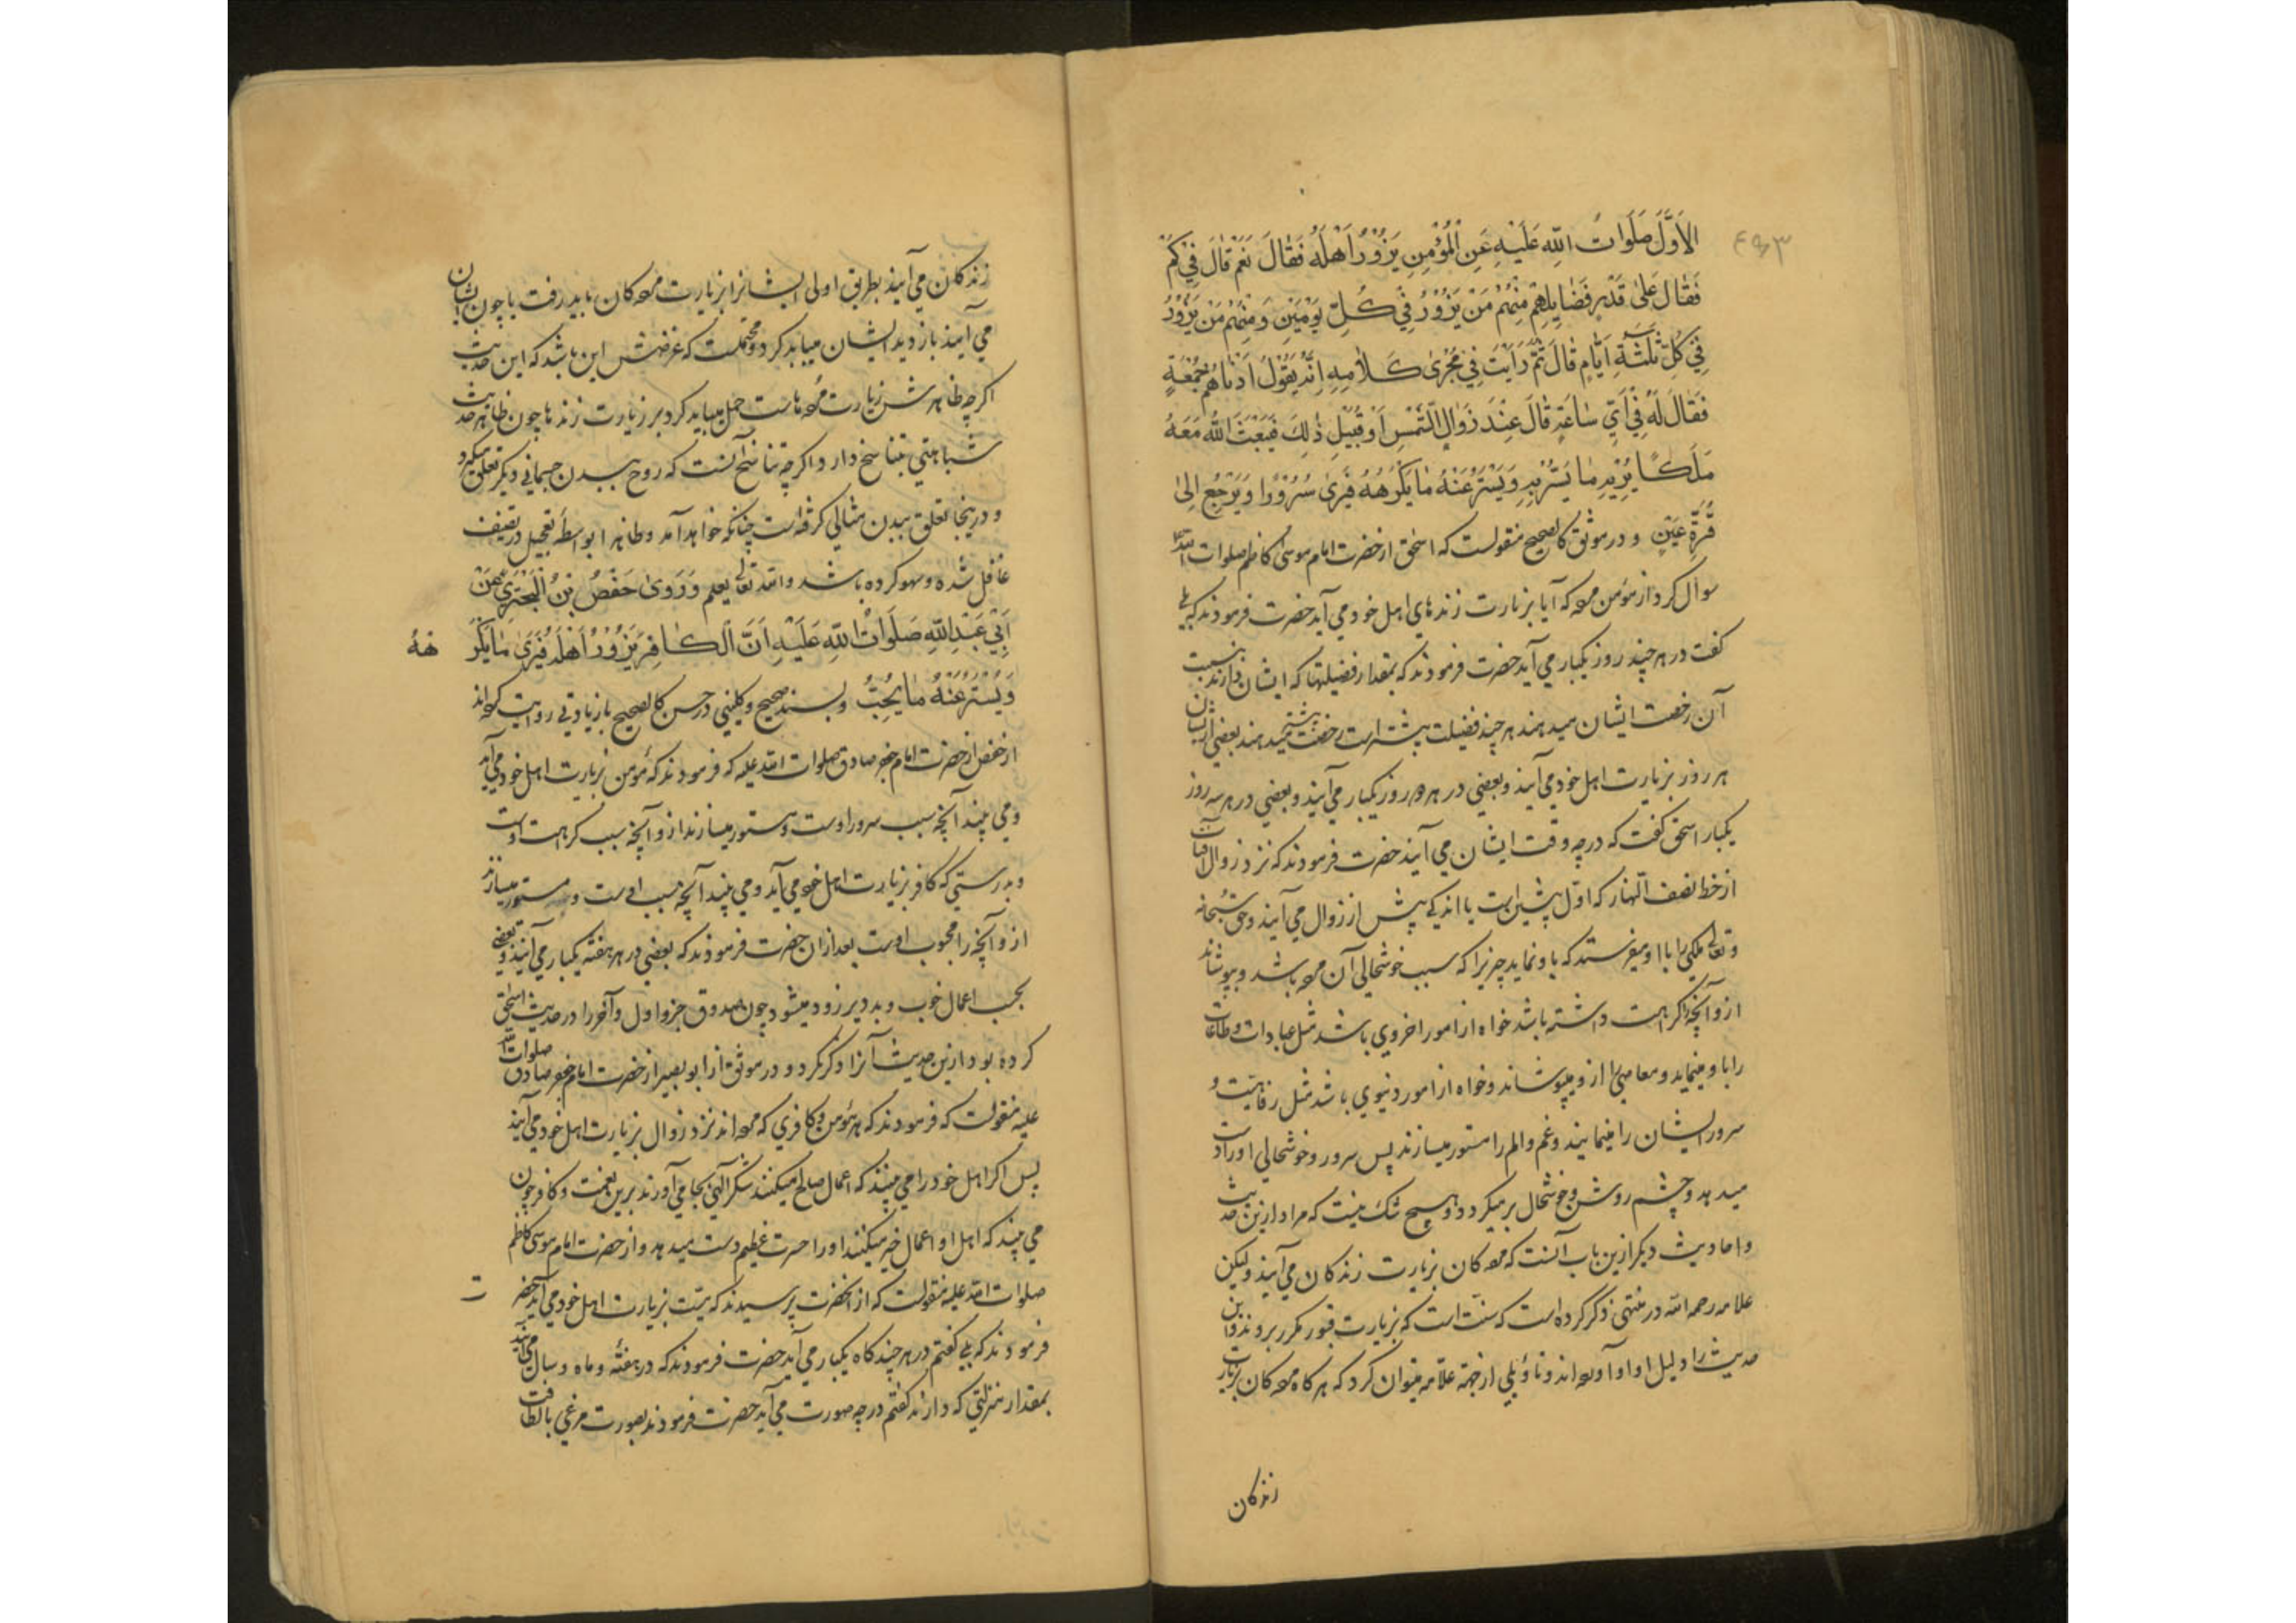 الاَوَّلَ صَلَواتُ اللّٰهِ عَلَيْهِ عَنِ الْمُؤْمِنِ يَزُوْرُ اَهْلَهُ فَقالَ نَعَمْ قالَ فِيْ كَمْ
فَقالَ عَلىٰ قَدْرِ فَضَايِلِهِمْ مِنْهُمْ مَنْ يَزُوْرُ فِيْ كُلِّ يَوْمَيْنِ وَ مِنْهُمْ مَنْ يَزُوْرُ
فِيْ كُلِّ ثَلٰثَةِ اَيّامٍ قالَ ثُمَّ رَاَيْتُ فِيْ مَجْرىٰ كَلامِهِ اِنَّهُ يَقُوْلُ اَدْناهُمْ جُمْعَةٍ
فَقالَ لَهُ فِيْ اَيِّ ساعَةٍ قالَ عِنْدَ زَوالِ الشَّمْسِ اَوْ قُبَيْلِ ذٰلِكَ فَيَبْعَثُ اللّٰهُ مَعَهُ
مَلَكًا يُرِيْهِ ما يَسُرُّ بِهِ وَ يَسْتُرُ عَنْهُ ما يَكْرَهُهُ فَيَرىٰ سُرُوْرًا وَ يَرْجِعُ اِلىٰ
قُرَّةِ عَيْنٍ و در موثق كالصحيح منقولست كه اسحق از حضرت امام موسى كاظم صلوات الله
سوال كرد از مؤمن مرده كه آيا بزيارت زندهاي اهل خود مي آيد حضرت فرمودند كه بلي
كفت در هر چند روز يكبار مي آيد حضرت فرمودند كه بمقدار فضيلتها كه ايشان دارند بنسبت
آن رخصت ايشان ميدهند هر چند فضيلت بيشتر است رخصت بيشتر ميدهند بعضي از ايشان
هر روز بزيارت اهل خود مي آيند و بعضي در هر دو روز يكبار مي آيند و بعضي در هر سه روز
يكبار اسحق كفت كه در چه وقت ايشان مي آيند حضرت فرمودند كه نزد زوال آفتاب
از خط نصف النهار كه اول پيشين است يا اندكي پيش از زوال مي آيند و حق سبحانه
و تعالى ملكى را با او ميفرستد كه باو نمايد چيزيرا كه سبب خوشحالي آن مرده باشد و بپوشاند
ازو آنچه را كراهت داشته باشد خواه از امور اخروي باشد مثل عبادات و طاعات
را باو مينمايد و معاصي را ازو ميپوشاند و خواه از امور دنيوي باشد مثل رفاهيت و
سرور ايشان را مينمايند و غم و الم را مستور ميسازند پس سرور و خوشحالي او را دست
ميدهد و چشم روشن و خوشحال برميكردد و هيچ شك نيست كه مراد ازين حديث
و احاديث ديكر ازين باب آنست كه مرده كان بزيارت زندكان مي آيند وليكن
علامه رحمه الله در منتهى ذكر كرده است كه سنت است كه بزيارت قبور مكرر بروند و اين
حديث را دليل او آورده اند و تاويلي از جهة علامه ميتوان كرد كه هر كاه مرده كان بزيارت
زندكان
زندكان مي آيند بطريق اولى ايشانرا بزيارت مرده كان بايد رفت يا چون ايشان
مي آيند بازديد ايشان ميبايد كرد و محتملست كه غرضش اين باشد كه اين حديث
اكرچه ظاهرش زيارت مرده هاست حمل ميبايد كرد بر زيارت زندها چون ظاهر حديث
شباهتي بتناسخ دارد و اكرچه تناسخ آنست كه روح ببدن جسماني ديكر تعلق ميكيرد
و دراينجا تعلق ببدن مثالي كرفته است چنانكه خواهد آمد و ظاهرا بواسطه تعجيل در تصنيف
غافل شده و سهو كرده باشد والله تعالى يعلم وَ رَوىٰ حَفْصُ بْنُ الْبَخْتَرِيِّ عَنْ
اَبِيْ عَبْدِ اللّٰهِ صَلَواتُ اللّٰهِ عَلَيْهِ اَنَّ الْكافِرَ يَزُوْرُ اَهْلَهُ فَيَرىٰ ما يَكْرَ هُهُ
وَ يُسْتَرُ عَنْهُ ما يُحِبُّ و بسند صحيح و كليني در حسن كالصحيح با زيادتي روايت كرده اند
از حفص از حضرت امام جعفر صادق صلوات الله عليه كه فرمودند كه مؤمن بزيارت اهل خود مي آيد
و مي بيند آنچه سبب سرور اوست و مستور ميسازند ازو آنچه سبب كراهت اوست
و بدرستي كه كافر بزيارت اهل خود مي آيد و مي بيند آنچه سبب اوست و مستور ميسازند
ازو آنچه را محبوب اوست بعد از ان حضرت فرمودند كه بعضي در هر هفته يكبار مي آيند و بعضي
بحسب اعمال خوب و بد دير و زود ميشود چون صدوق جزو اول و آخر را در حديث اسحق
كرده بود ازين حديث آنرا ذكر نكرد و در موثق از ابو بصير از حضرت امام جعفر صادق صلوات الله
عليه منقولست كه فرمودند كه هر مؤمن و كافري كه مرده اند نزد زوال بزيارت اهل خود مي آيند
پس اكر اهل خود را مي بيند كه اعمال صالح ميكنند شكر الهي بجا مي آورند برين نعمت و كافر چون
مي بيند كه اهل او اعمال خير ميكنند او را حسرت عظيم دست ميدهد و از حضرت امام موسى كاظم
صلوات الله عليه منقولست كه از آنحضرت پرسيدند كه ميت بزيارت اهل خود مي آيد حضر ت
فرمودند كه بلي كفتم در هر چند كاه يكبار مي آيد حضرت فرمودند كه در هفته و ماه و سال مي آيند
بمقدار منزلتي كه دارند كفتم در چه صورت مي آيد حضرت فرمودند بصورت مرغي با لطافت